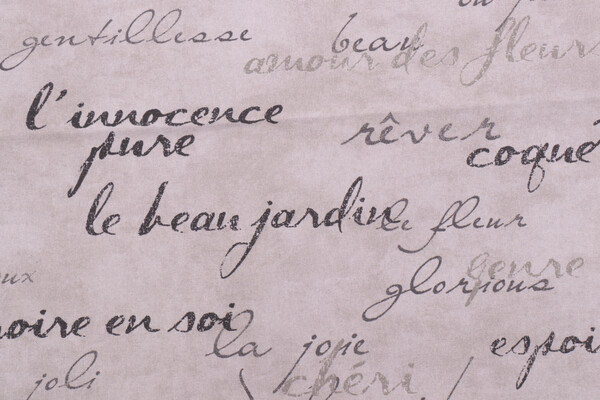 gentillesse
beau
amour des fleurs
l'innocence
pure
rêver
coqué
le beau jardin
le fleur
genre
glorious
noire en soi
la joie
espoi
joli
chéri